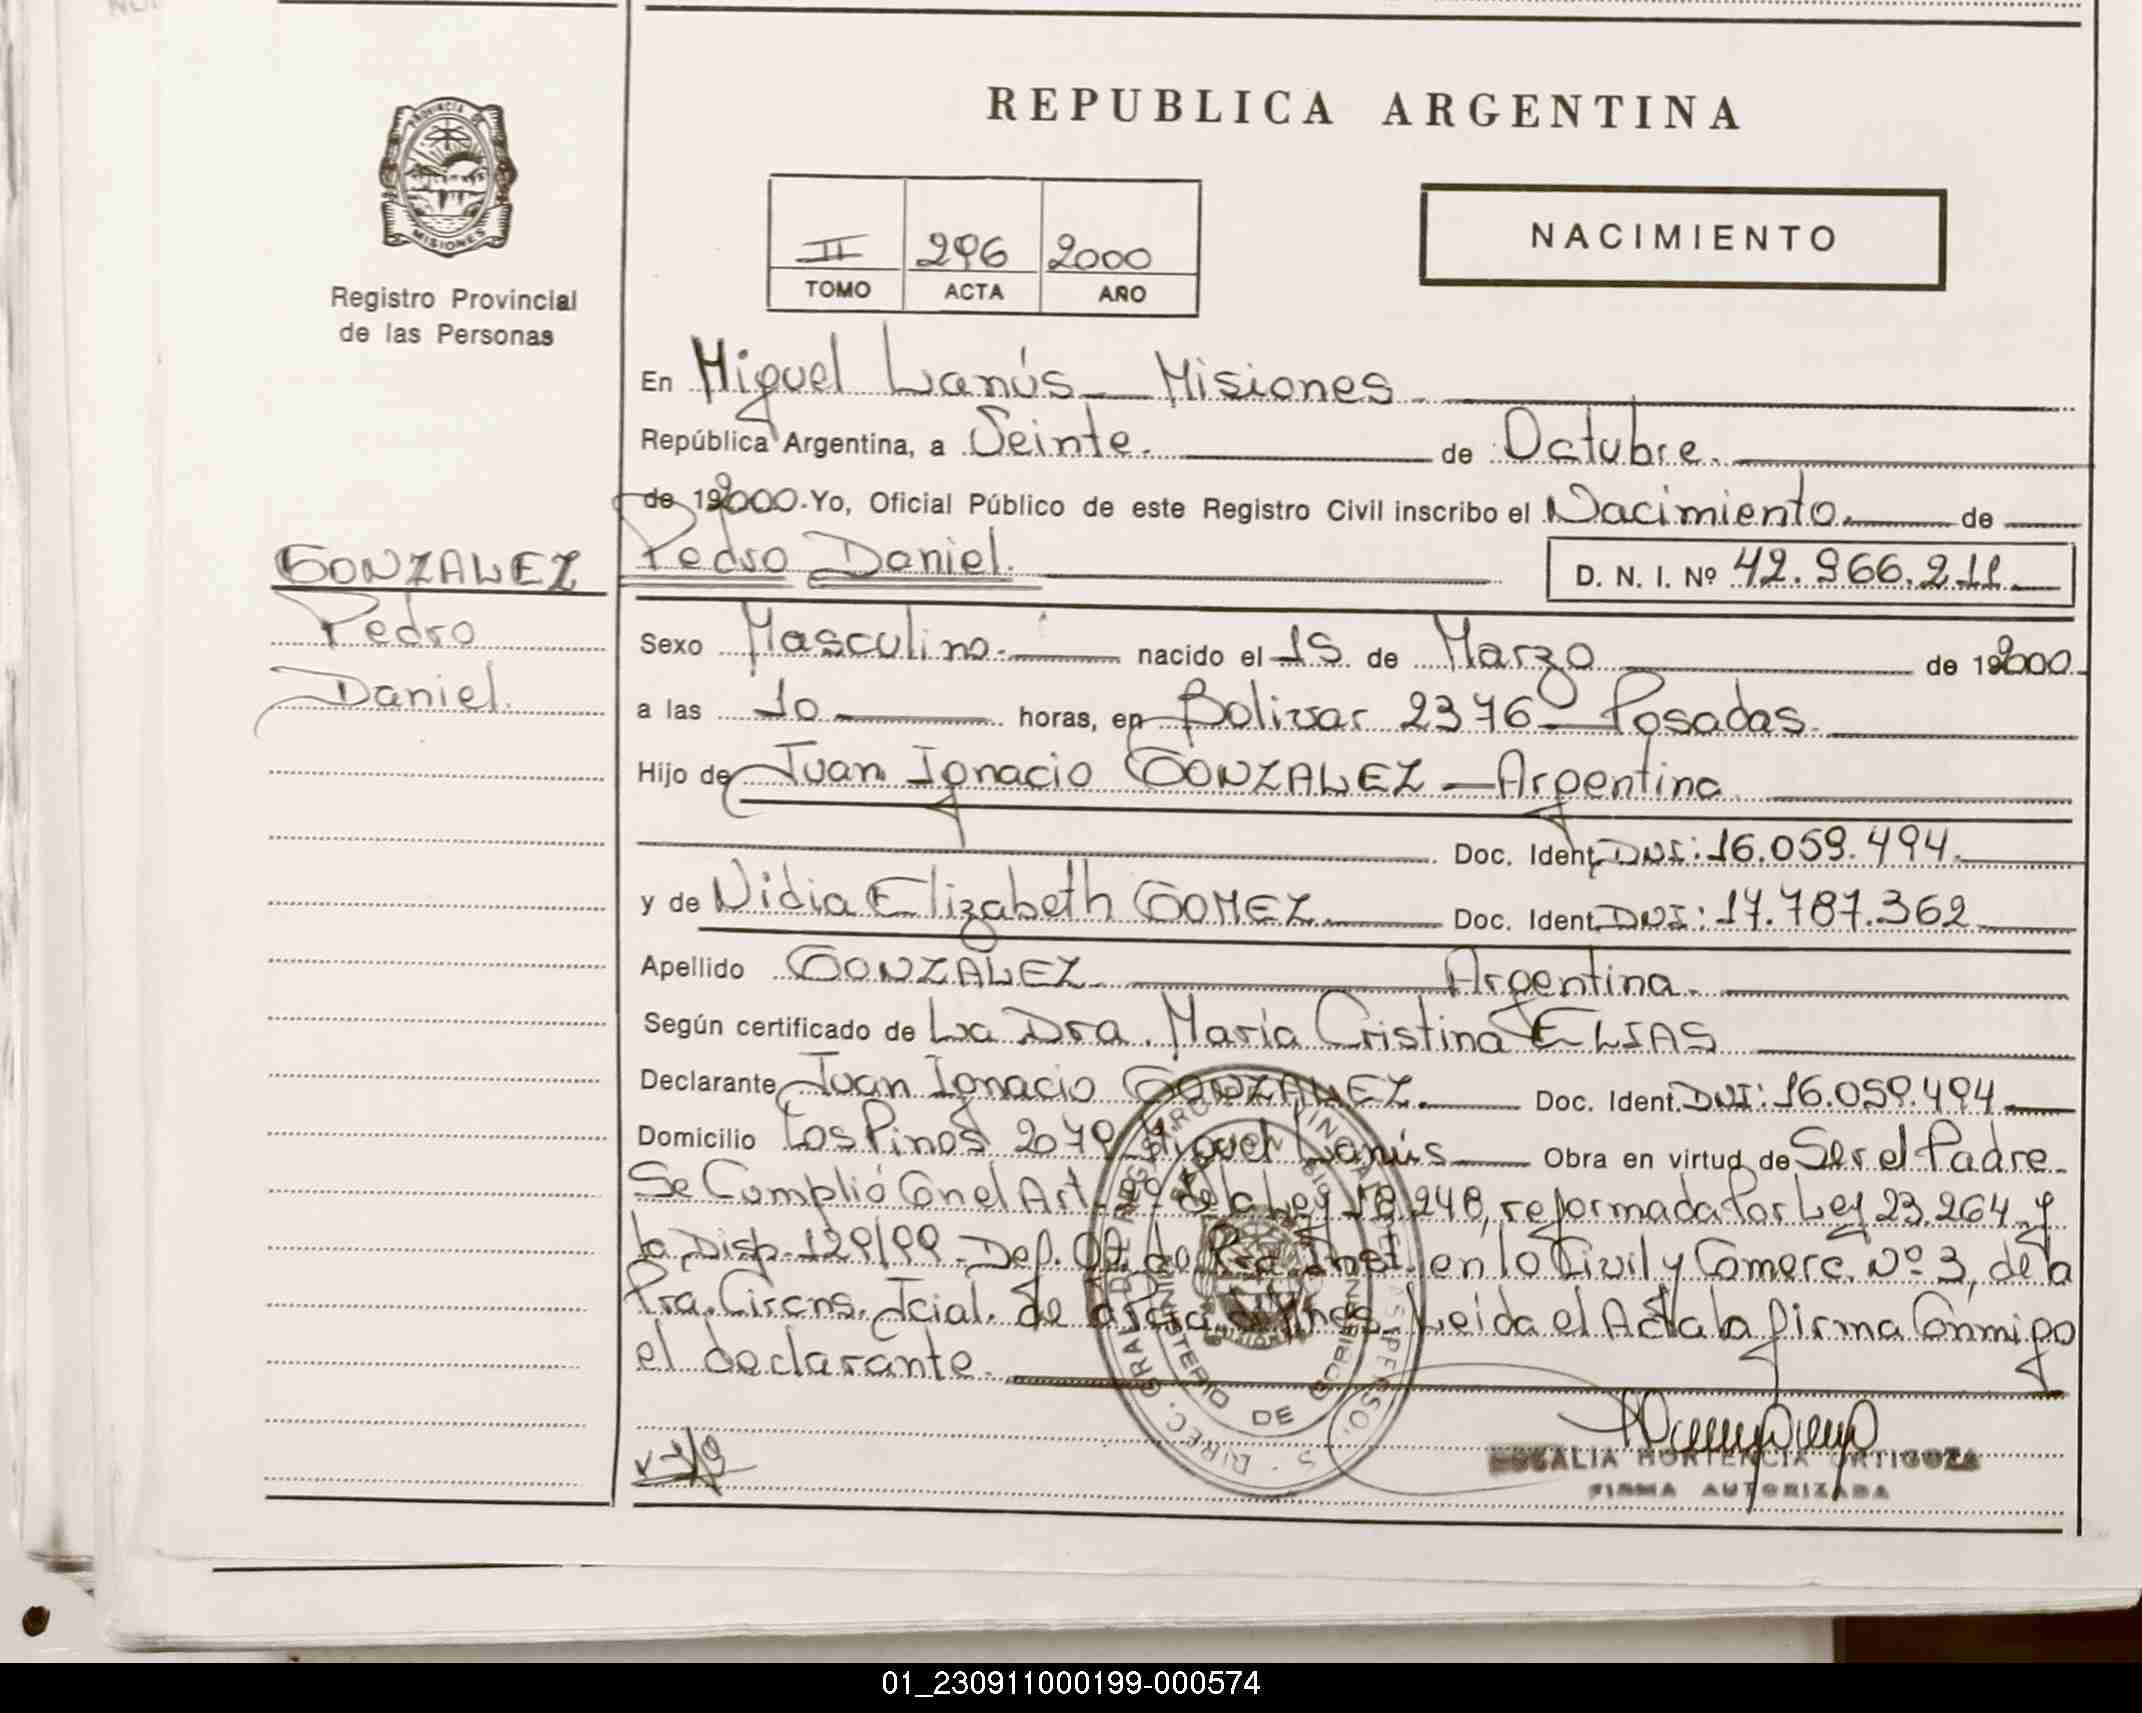 REPUBLICA ARGENTINA
PROVINCIA DE
MISIONES
Registro Provincial
de las Personas
II 296 2000
TOMO ACTA AÑO
NACIMIENTO
En Miguel Lanús - Misiones
República Argentina, a Veinte. de Octubre.
de 192000. Yo, Oficial Público de este Registro Civil inscribo el Nacimiento de
GONZALEZ
Pedro
Daniel.
Pedro Daniel. D. N. I. Nº 42.966.211
Sexo Masculino. nacido el 15 de Marzo de 192000
a las 10 horas, en Bolivar 2376 - Posadas.
Hijo de Juan Ignacio GONZALEZ - Argentina
Doc. Ident. DNI: 16.059.494.
y de Nidia Elizabeth GOMEZ. Doc. Ident. DNI: 17.787.362
Apellido GONZALEZ. Argentina.
Según certificado de La Dra. María Cristina ELIAS
Declarante Juan Ignacio GONZALEZ. Doc. Ident. DNI: 16.059.494
Domicilio Los Pinos 2079 Miguel Lanús Obra en virtud de Ser el Padre.
Se Cumplió Con el Art. 2º de la Ley 18.248, reformada Por Ley 23.264 y
la Disp. 129/99 - Def. Of. de Pra. Inst. en lo Civil y Comerc. Nº 3, de la
Pra. Circns. Jcial. de Mnes. Leída el Acta la firma Conmigo
el declarante.
MINISTERIO DE GOBIERNO
ROSALIA HORTENCIA ORTIGOZA
FIRMA AUTORIZADA
01_230911000199-000574